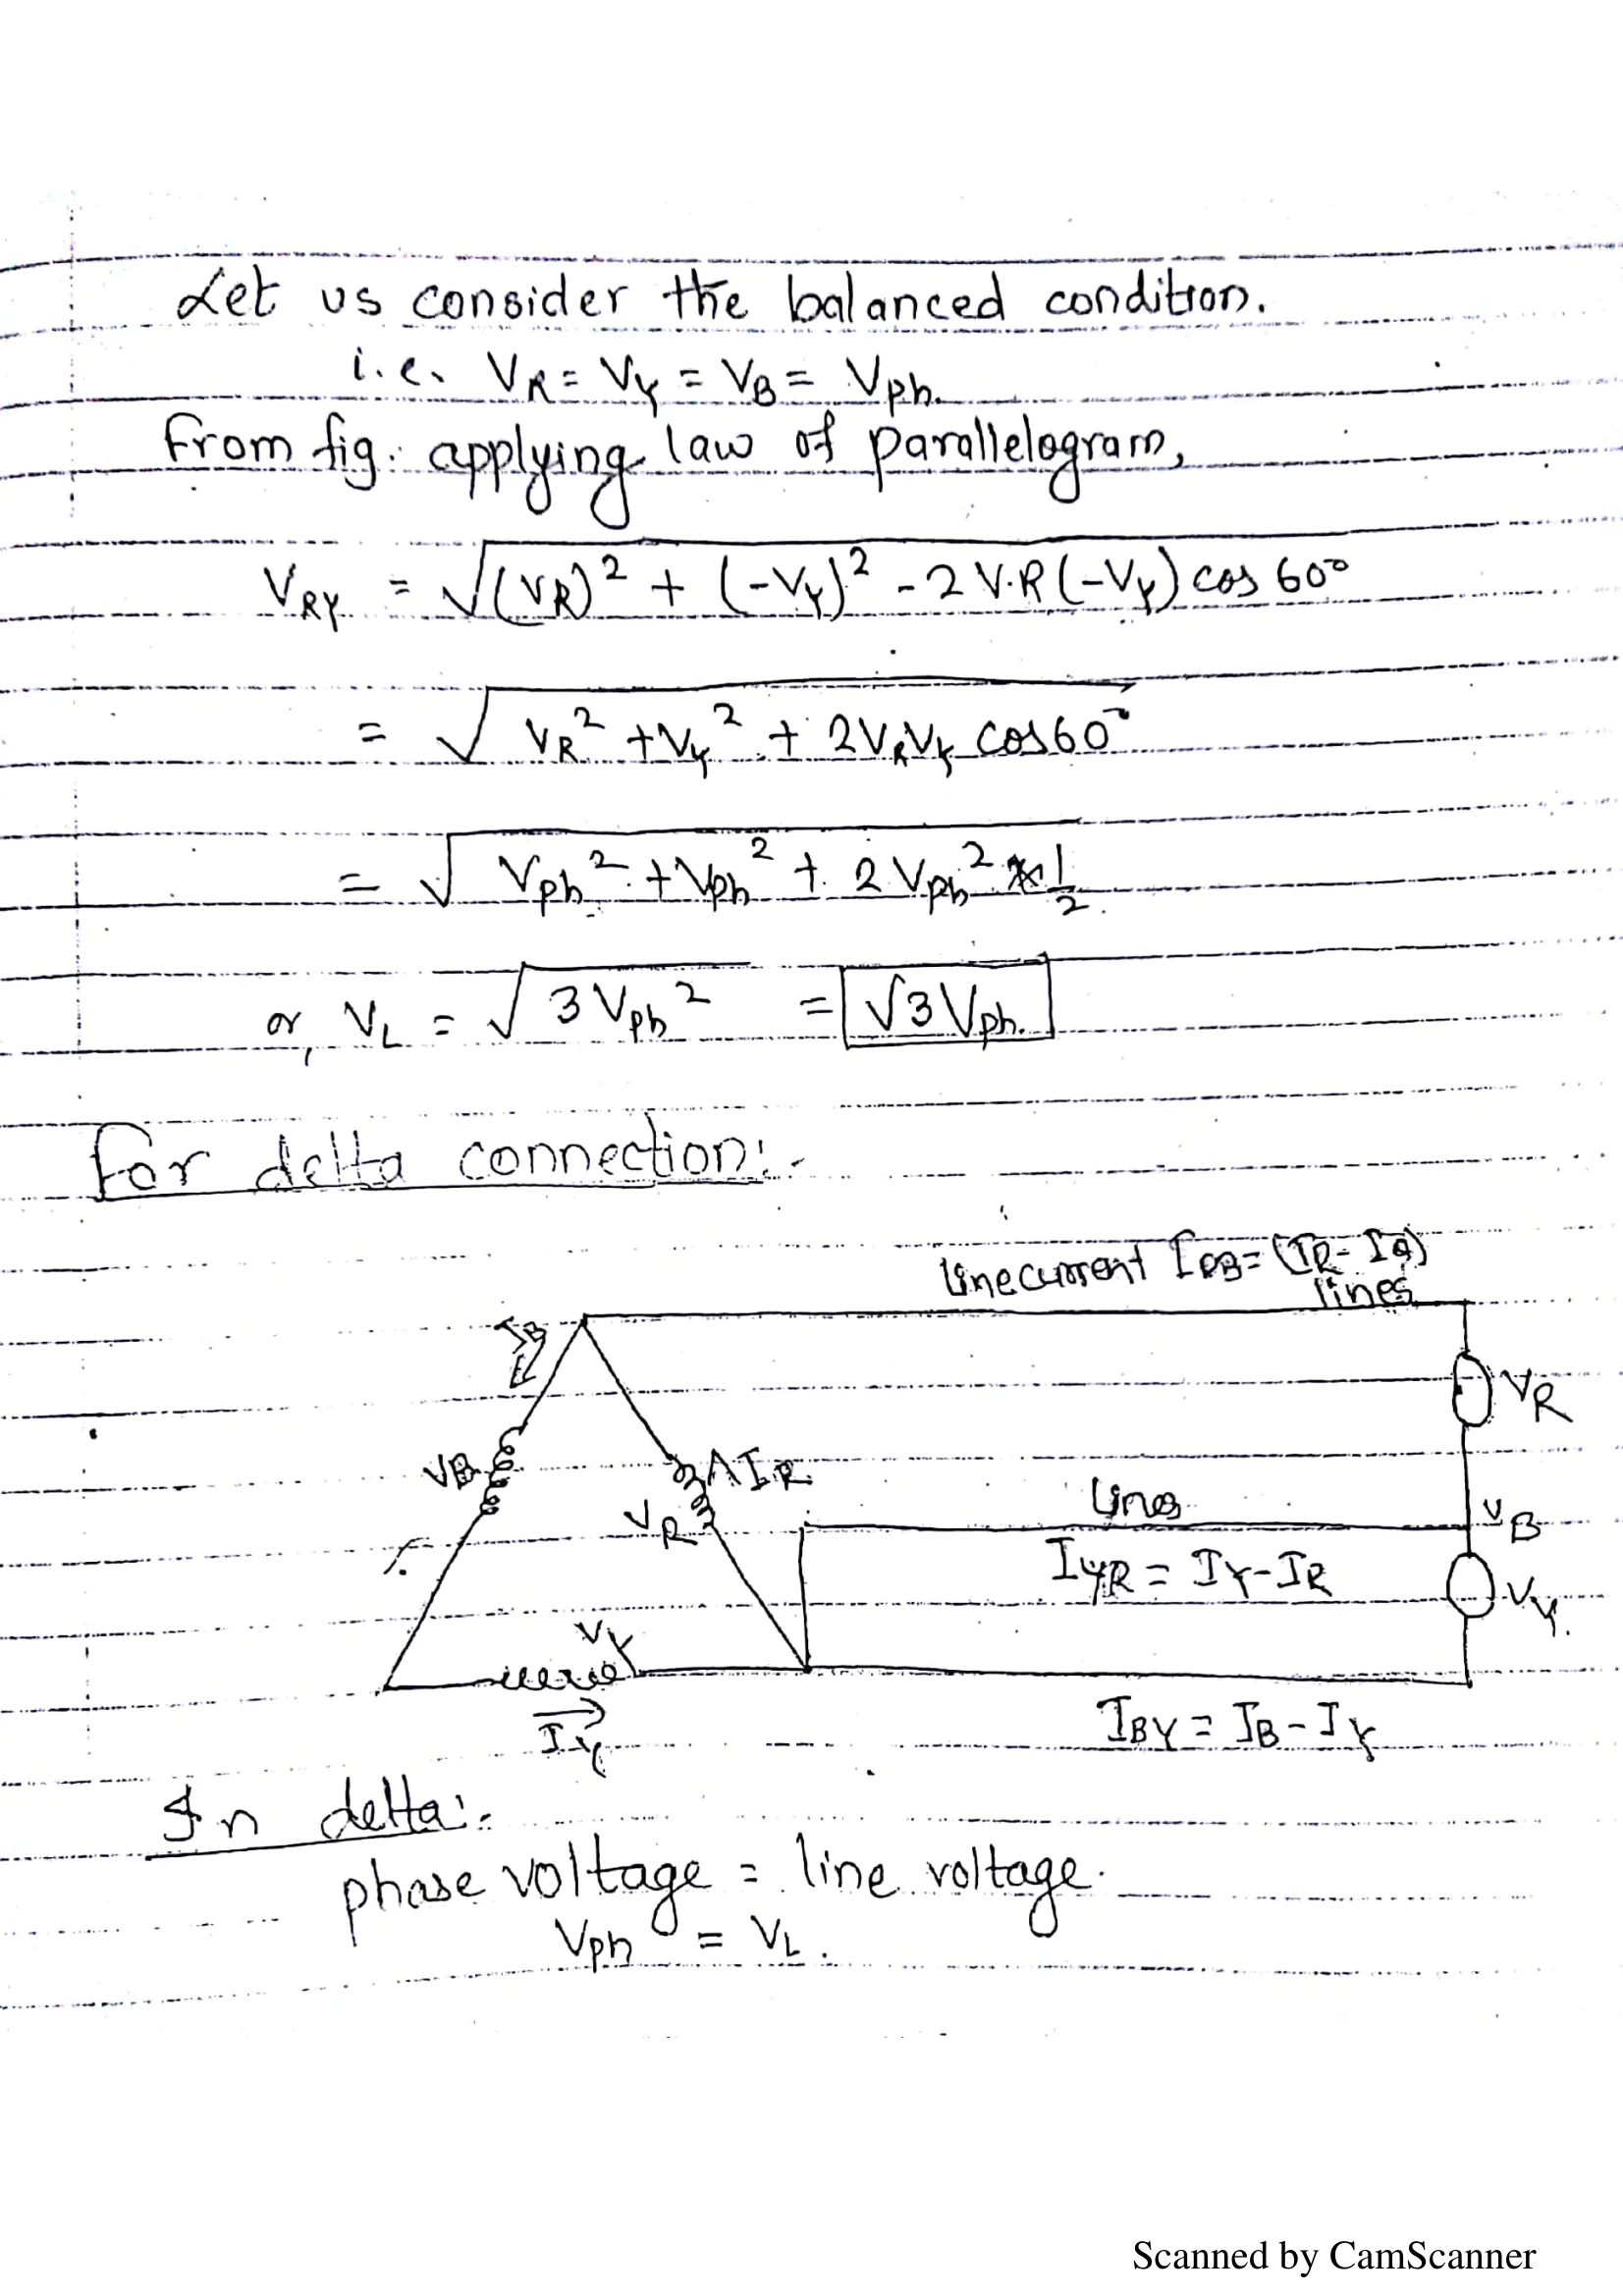 Let us consider the balanced condition.
i.e. V_R = V_Y = V_B = V_ph.
From fig. applying law of parallelogram,
V_RY = √((V_R)² + (-V_Y)² - 2 V.R (-V_Y) cos 60°
= √(V_R² + V_Y² + 2V_R V_Y cos 60°
= √(V_ph² + V_ph² + 2 V_ph² × 1/2
or, V_L = √(3 V_ph²) = √3 V_ph.
For delta connection:-
line current I_RB = (I_R - I_B)
lines
I_B
V_R
V_B
I_R
V_R
lines
V_B
I_YR = I_Y - I_R
V_Y.
V_Y
I_Y
I_BY = I_B - I_Y
In delta:-
phase voltage = line voltage.
V_ph = V_L.
Scanned by CamScanner